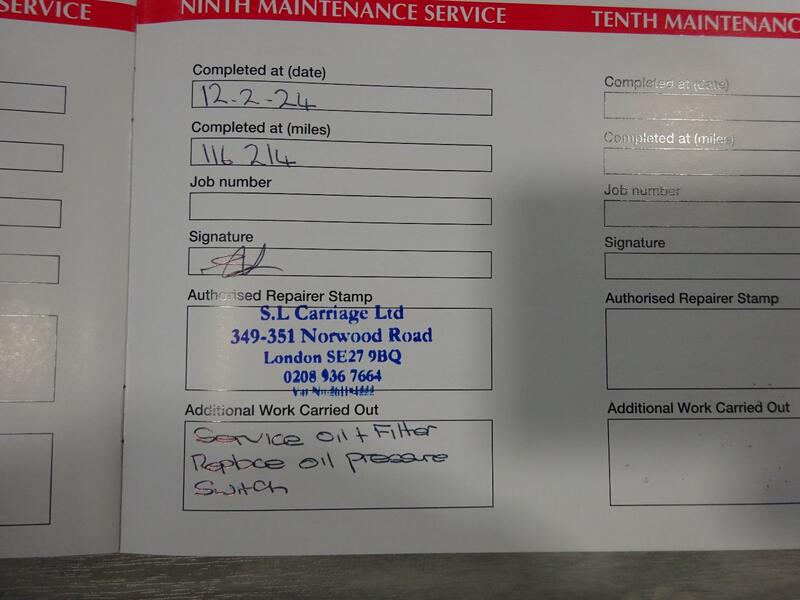 SERVICE
NINTH MAINTENANCE SERVICE
Completed at (date)
12-2-24
Completed at (miles)
116 214
Job number
Signature
Authorised Repairer Stamp
S.L Carriage Ltd
349-351 Norwood Road
London SE27 9BQ
0208 936 7664
Additional Work Carried Out
Service oil + Filter
Replace oil pressure
Switch
TENTH MAINTENANC
Completed at (date)
Completed at (miles)
Job number
Signature
Authorised Repairer Stamp
Additional Work Carried Out